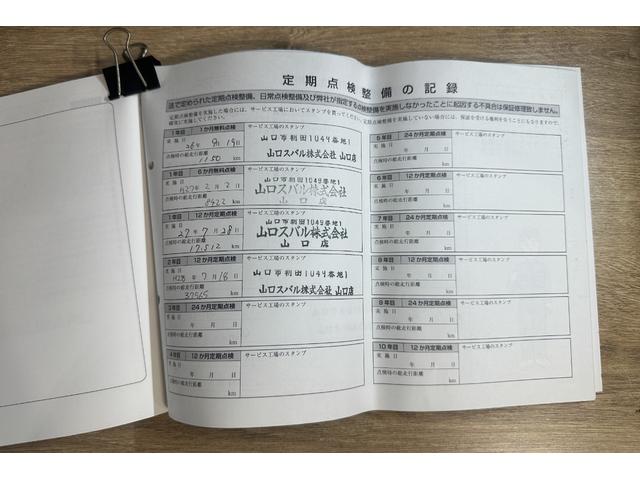 定期点検整備の記録
法で定められた定期点検整備、日常点検整備及び弊社が指定する点検整備を実施しなかったことに起因する不具合は保証修理致しません。
定期点検整備を実施した場合は、サービス工場においてスタンプを貰ってください。
1年目 1か月無料点検 サービス工場のスタンプ
実施日
26年9月19日
点検時の総走行距離
1150 km
山口市朝田1049番地1
山口スバル株式会社 山口店
1年目 6か月無料点検 サービス工場のスタンプ
実施日
H27年2月2日
点検時の総走行距離
8422 km
山口市朝田1049番地1
山口スバル株式会社
山口店
1年目 12か月定期点検 サービス工場のスタンプ
実施日
27年7月28日
点検時の総走行距離
17,512 km
山口市朝田1049番地1
山口スバル株式会社
山口店
2年目 12か月定期点検 サービス工場のスタンプ
実施日
H28年7月18日
点検時の総走行距離
37565 km
山口市朝田1049番地1
山口スバル株式会社 山口店
3年目 24か月定期点検 サービス工場のスタンプ
実施日
年 月 日
点検時の総走行距離
km
4年目 12か月定期点検 サービス工場のスタンプ
実施日
年 月 日
点検時の総走行距離
km
5年目 24か月定期点検 サービス工場のスタンプ
実施日
年 月 日
点検時の総走行距離
km
6年目 12か月定期点検 サービス工場のスタンプ
実施日
年 月 日
点検時の総走行距離
km
7年目 24か月定期点検 サービス工場のスタンプ
実施日
年 月 日
点検時の総走行距離
km
8年目 12か月定期点検 サービス工場のスタンプ
実施日
年 月 日
点検時の総走行距離
km
9年目 24か月定期点検 サービス工場のスタンプ
実施日
年 月 日
点検時の総走行距離
km
10年目 12か月定期点検 サービス工場のスタンプ
実施日
年 月 日
点検時の総走行距離
km